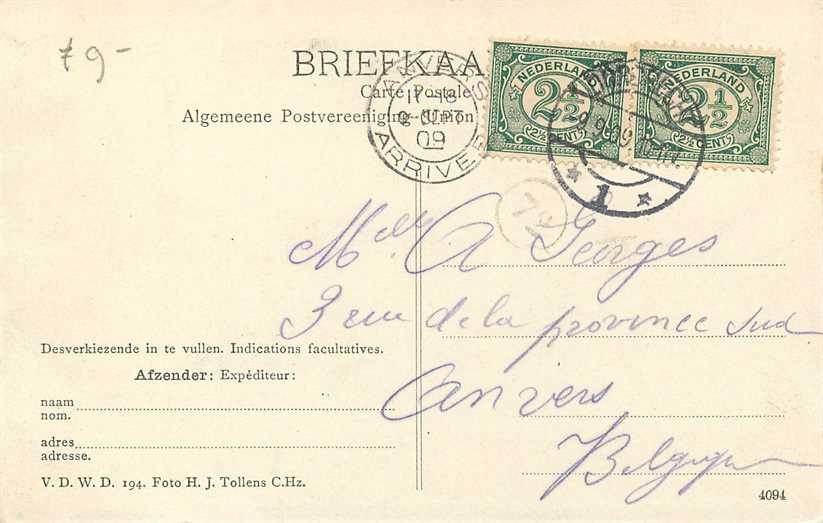 79-
BRIEFKAA
Carte Postale
Algemeene Postvereeniging-Union
ANVERS
11-18
9 SEPT
09
ARRIVEE
NEDERLAND
2½
2½ CENT
NEDERLAND
2½
2½ CENT
9.9.09
1
72
Mlle A Georges
3 rue de la province sud
Anvers
Belgique
Desverkiezende in te vullen. Indications facultatives.
Afzender: Expéditeur:
naam
nom.
adres
adresse.
V. D. W. D. 194. Foto H. J. Tollens C.Hz.
4094